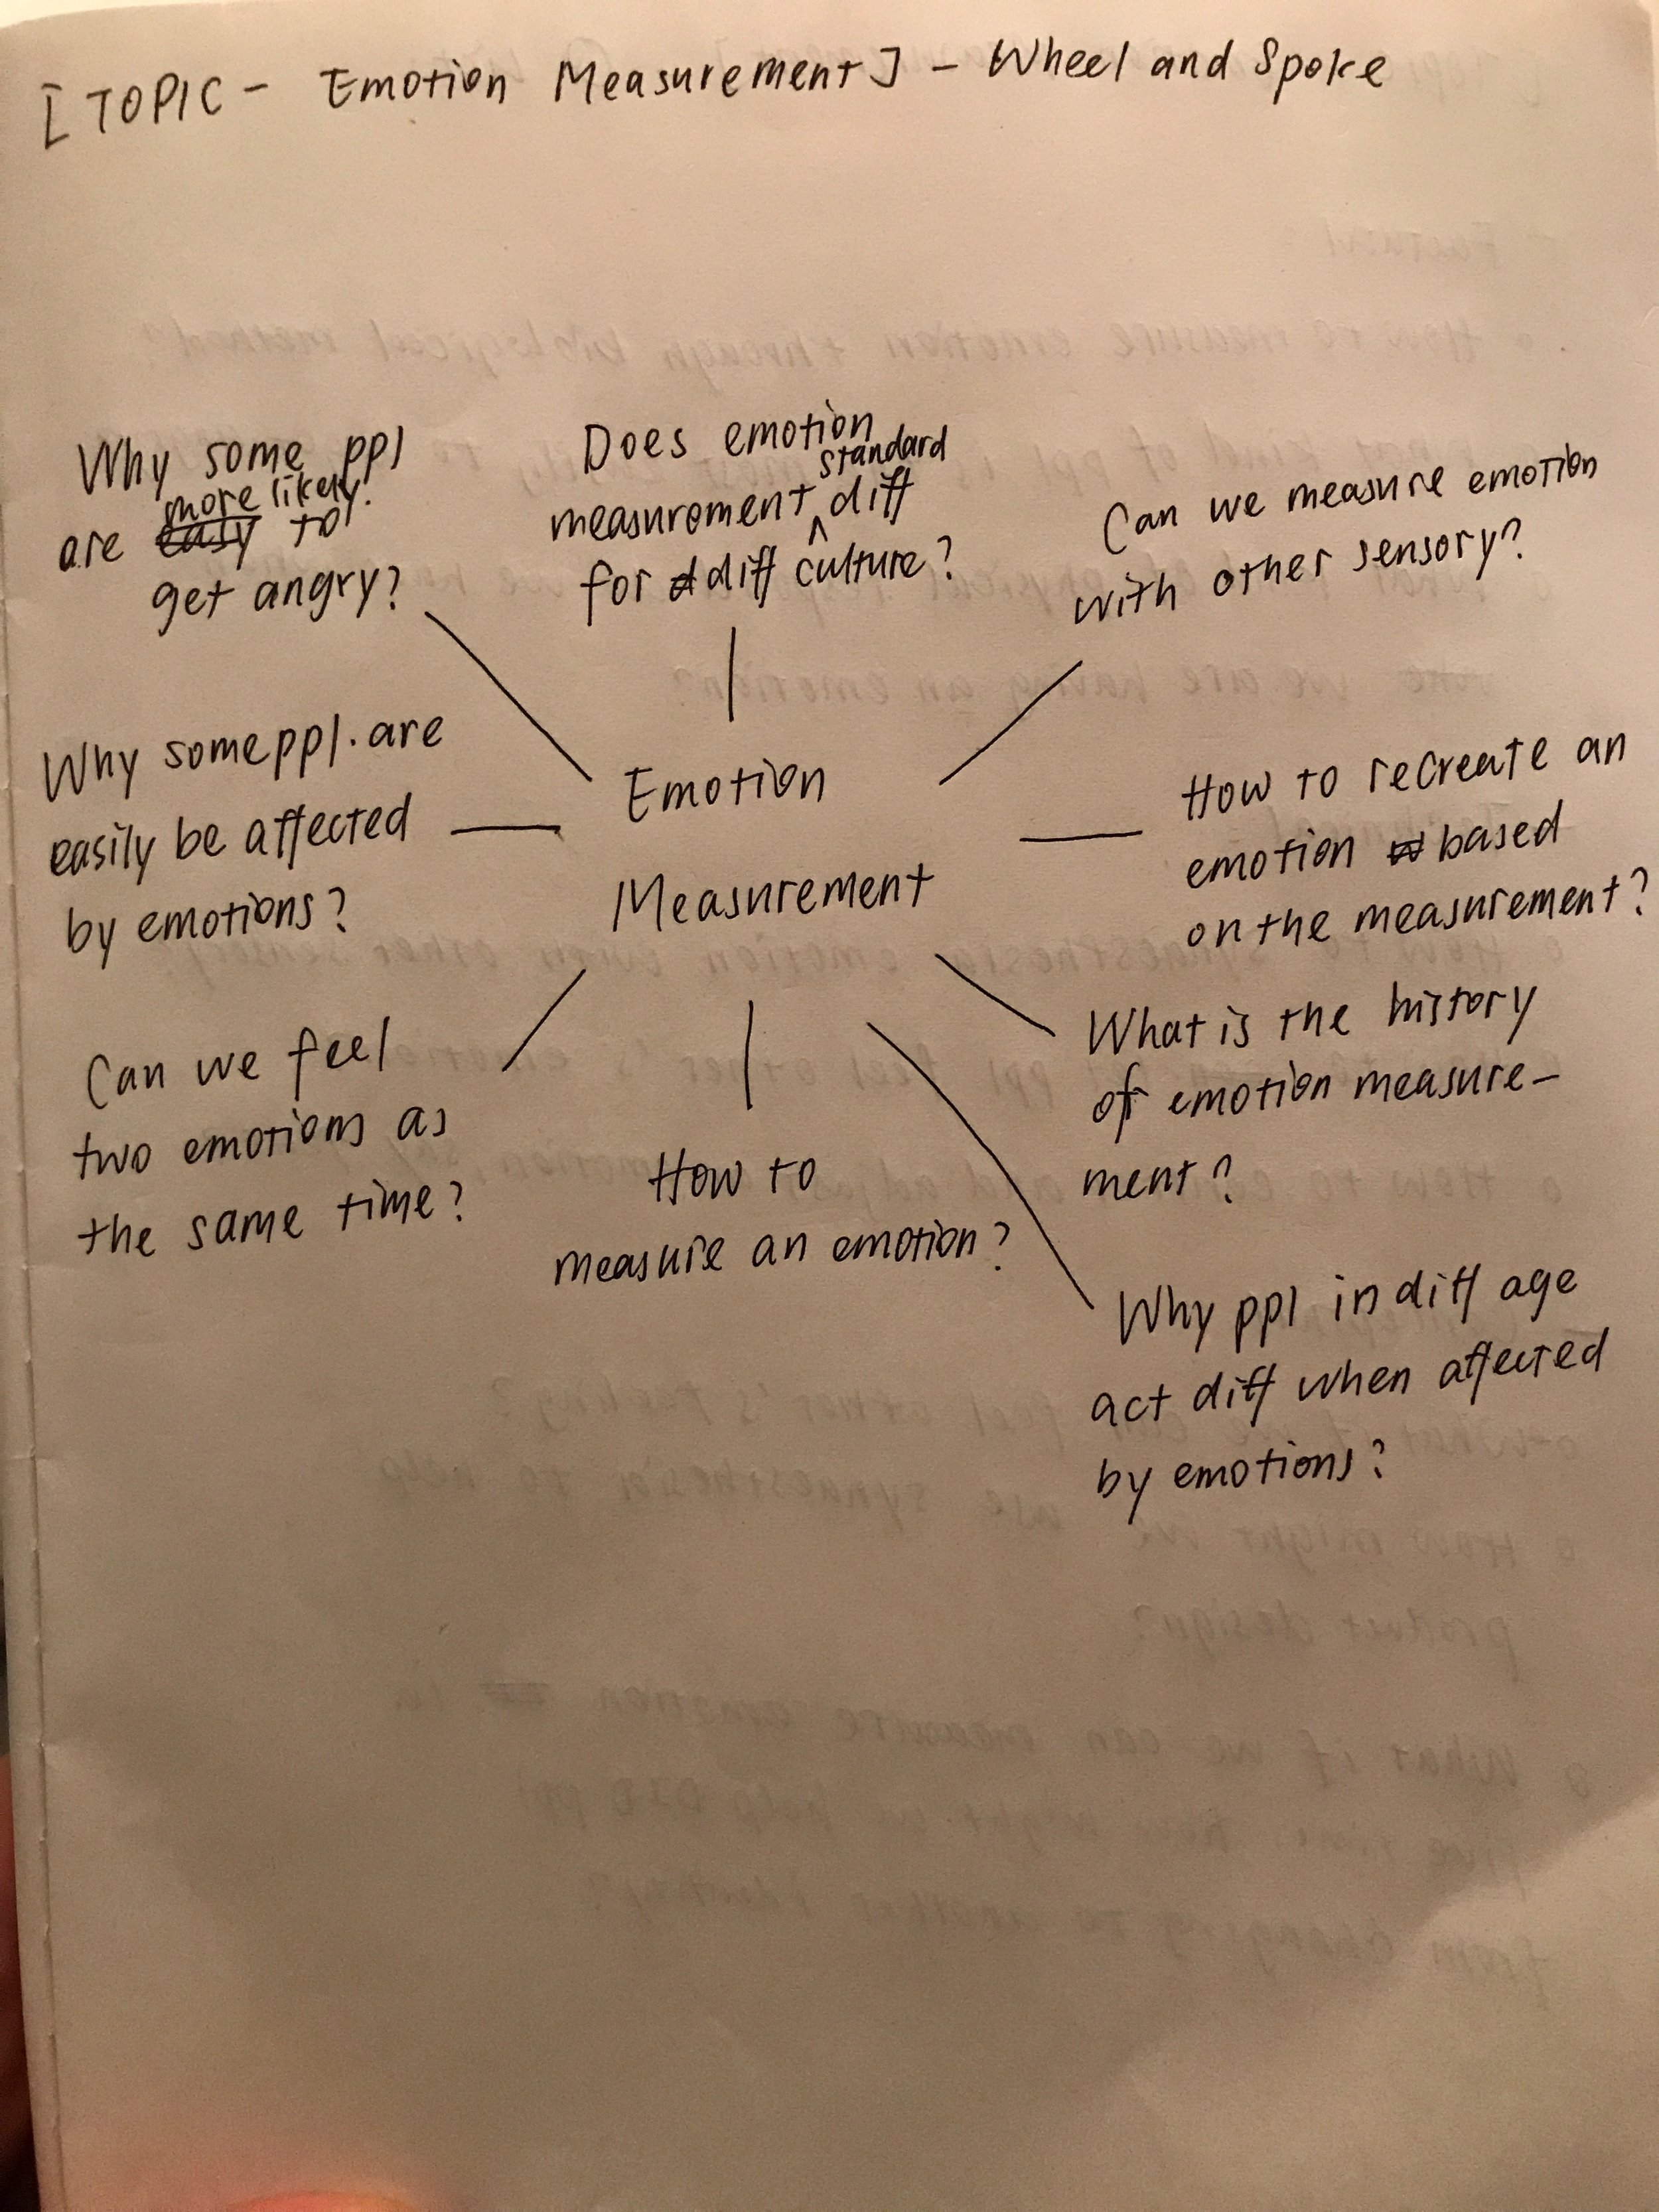 [TOPIC - Emotion Measurement] - Wheel and Spoke
Why some ppl
more likely
are easy to
get angry?
Does emotion
standard
measurement diff
for diff culture?
Can we measure emotion
with other sensory?
Why some ppl. are
easily be affected
by emotions?
Emotion
Measurement
How to recreate an
emotion based
on the measurement?
Can we feel
two emotions as
the same time?
How to
measure an emotion?
What is the history
of emotion measure-
ment?
Why ppl in diff age
act diff when affected
by emotions?